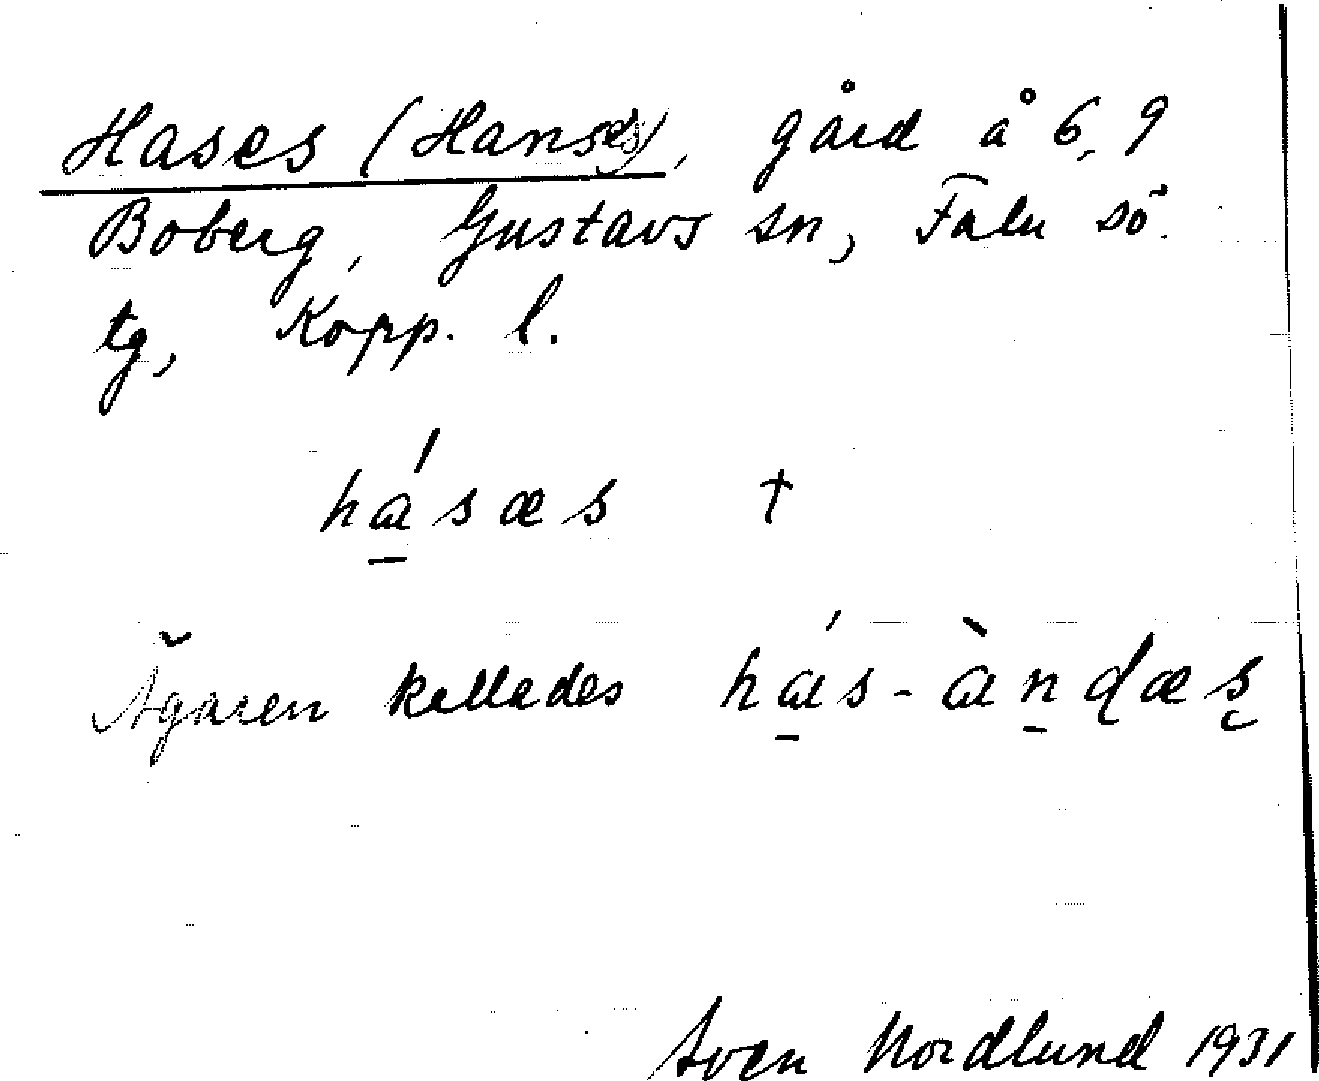 Hases (Hanses), gård å 6, 9
Boberg, Gustavs sn, Falu sö.
tg, Kopp. l.
hásæs †
Ägaren kallades hás-àndæs
Sven Nordlund 1931